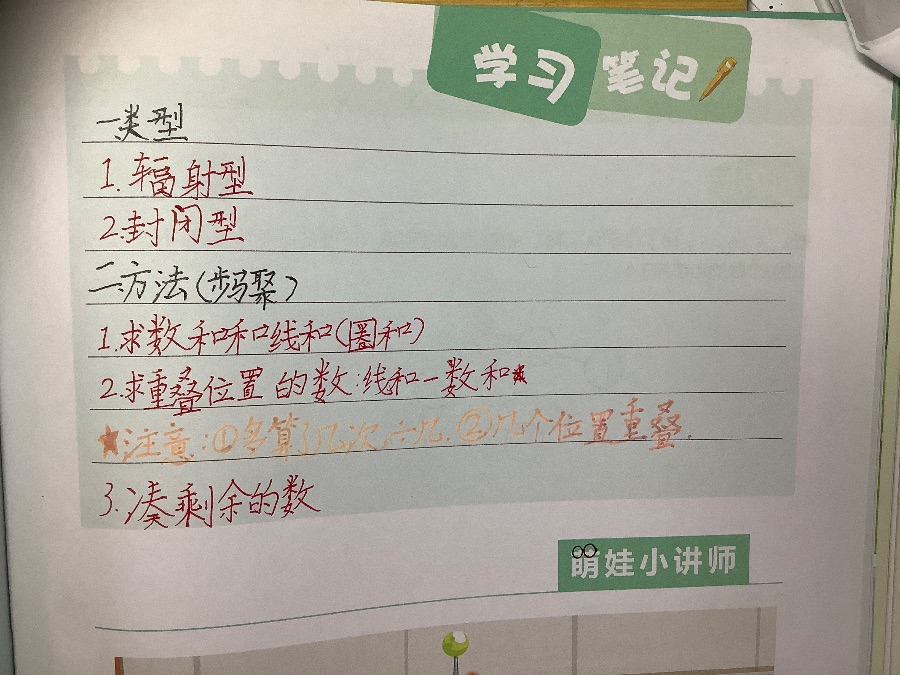 学习笔记
一类型
1.辐射型
2.封闭型
二.方法(步骤)
1.求数和和线和(圈和)
2.求重叠位置的数:线和-数和★
★注意:①多算了几次 ②几个位置重叠.
3.凑剩余的数
萌娃小讲师